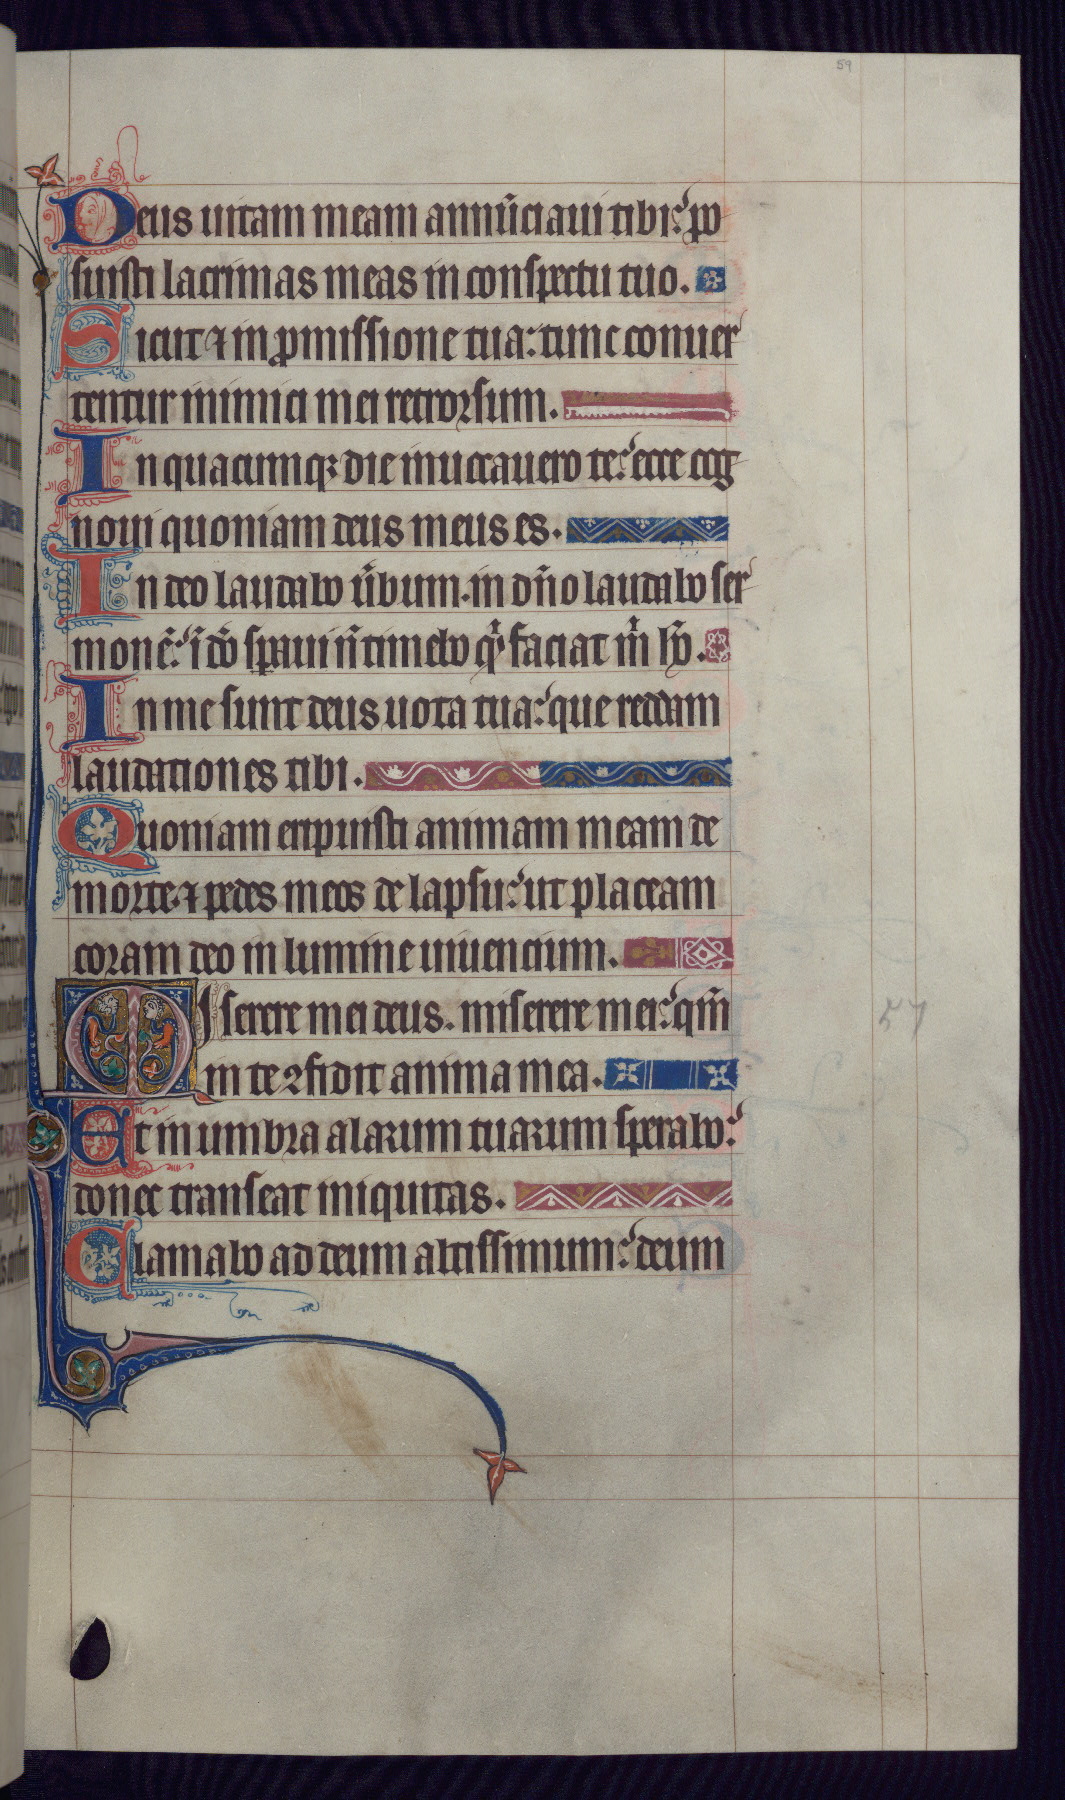 59
Deus uitam meam annūciaui tibi: po
suisti lacrimas meas in conspectu tuo.
Sicut ⁊ in ꝓmissione tua: tunc conuer
tentur inimici mei retrorsum.
In quacumqꝫ die inuocauero te: ecce cog
noui quoniam deus meus es.
In deo laudabo ủbum. in dn̄o laudabo ser
monē: ī dō sꝑaui n̄ timebo qͥ faciat m̄ hō.
In me sunt deus uota tua: que reddam
laudationes tibi.
Quoniam eripuisti animam meam de
morte ⁊ pedes meos de lapsu: ut placeam
coram deo in lumine uiuencium.
Miserere mei deus. miserere mei: qm̄
in te ↄfidit anima mea.
Et in umbra alarum tuarum sperabo:
donec transeat iniquitas.
Clamabo ad deum altissimum: deum
57